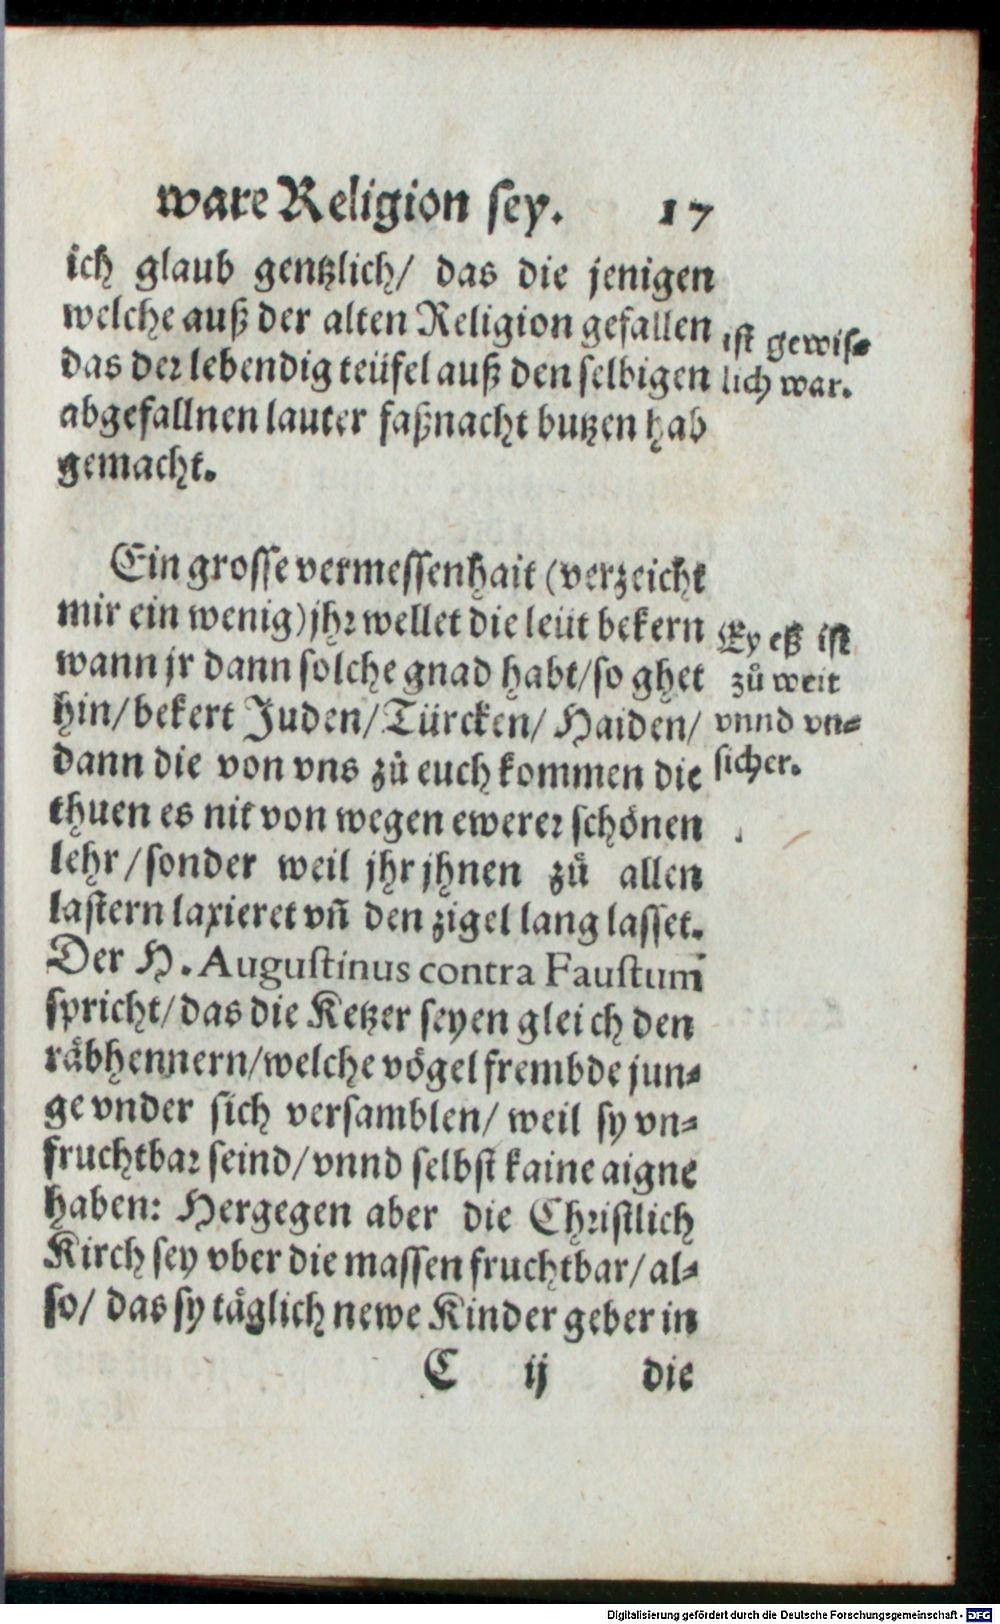 ware Religion sey. 17
ich glaub gentzlich/ das die jenigen
welche auß der alten Religion gefallen
das der lebendig teüfel auß den selbigen
abgefallnen lauter faßnacht butzen hab
gemacht.
ist gewis⸗
lich war.
Ein grosse vermessenhait (verzeicht
mir ein wenig) jhr wellet die leüt bekern
wann jr dann solche gnad habt/ so ghet
hin/ bekert Juden/ Türcken/ Haiden/
dann die von vns zů euch kommen die
thuen es nit von wegen ewerer schönen
lehr/ sonder weil jhr jhnen zů allen
lastern laxieret vñ den zigel lang lasset.
Der H. Augustinus contra Faustum
spricht/ das die Ketzer seyen gleich den
råbhennern/ welche vögel frembde jun⸗
ge vnder sich versamblen/ weil sy vn⸗
fruchtbar seind/ vnnd selbst kaine aigne
haben: Hergegen aber die Christlich
Kirch sey vber die massen fruchtbar/ al⸗
so/ das sy täglich newe Kinder geber in
Ey eß ist
zů weit
vnnd vn⸗
sicher.
C ij die
Digitalisierung gefördert durch die Deutsche Forschungsgemeinschaft - DFG